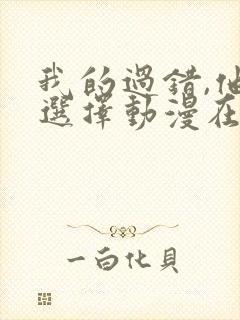 我的過錯,他
選擇動漫在
一白化貝